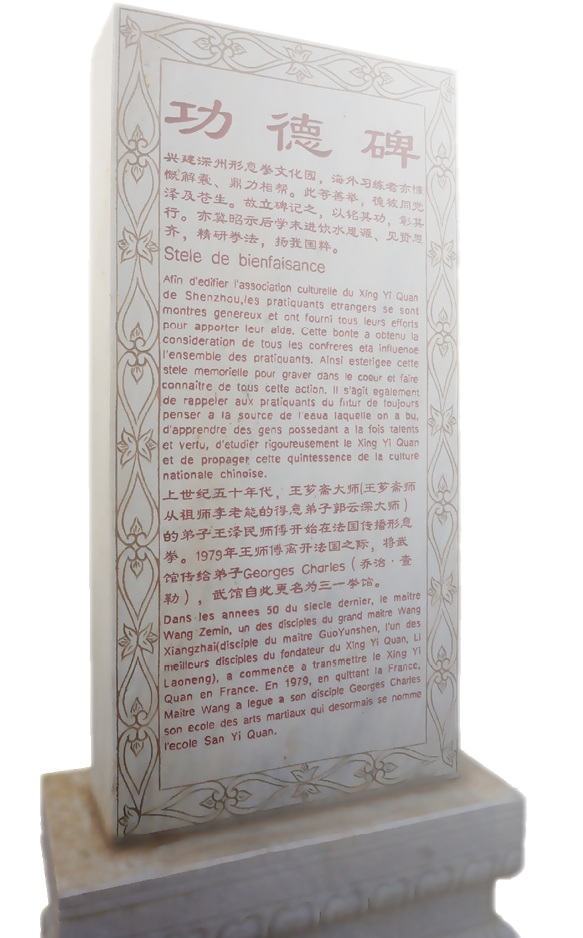 功德碑
兴建深州形意拳文化园，海外习练者亦慷
慨解囊、鼎力相帮。此等善举，德被同党
泽及苍生。故立碑记之，以铭其功，彰其
行。亦冀昭示后学末进饮水思源、见贤思
齐，精研拳法，扬我国粹。
Stele de bienfaisance
Afin d'edifier l'association culturelle du Xing Yi Quan
de Shenzhou,les pratiquants etrangers se sont
montres genereux et ont fourni tous leurs efforts
pour apporter leur aide. Cette bonte a obtenu la
consideration de tous les confreres eta influence
l'ensemble des pratiquants. Ainsi esterigee cette
stele memorielle pour graver dans le coeur et faire
connaitre de tous cette action. Il s'agit egalement
de rappeler aux pratiquants du futur de toujours
penser a la source de l'eaua laquelle on a bu,
d'apprendre des gens possedant a la fois talents
et vertu, d'etudier rigoureusement le Xing Yi Quan
et de propager cette quintessence de la culture
nationale chinoise.
上世纪五十年代，王芗斋大师(王芗斋师
从祖师李老能的得意弟子郭云深大师）
的弟子王泽民师傅开始在法国传播形意
拳。1979年王师傅离开法国之际，将武
馆传给弟子Georges Charles（乔治·查
勒），武馆自此更名为三一拳馆。
Dans les annees 50 du siecle dernier, le maitre
Wang Zemin, un des disciples du grand maitre Wang
Xiangzhai(disciple du maitre GuoYunshen, l'un des
meilleurs disciples du fondateur du Xing Yi Quan, Li
Laoneng), a commence a transmettre le Xing Yi
Quan en France. En 1979, en quittant la France,
Maitre Wang a legue a son disciple Georges Charles
son ecole des arts martiaux qui desormais se nomme
l'ecole San Yi Quan.